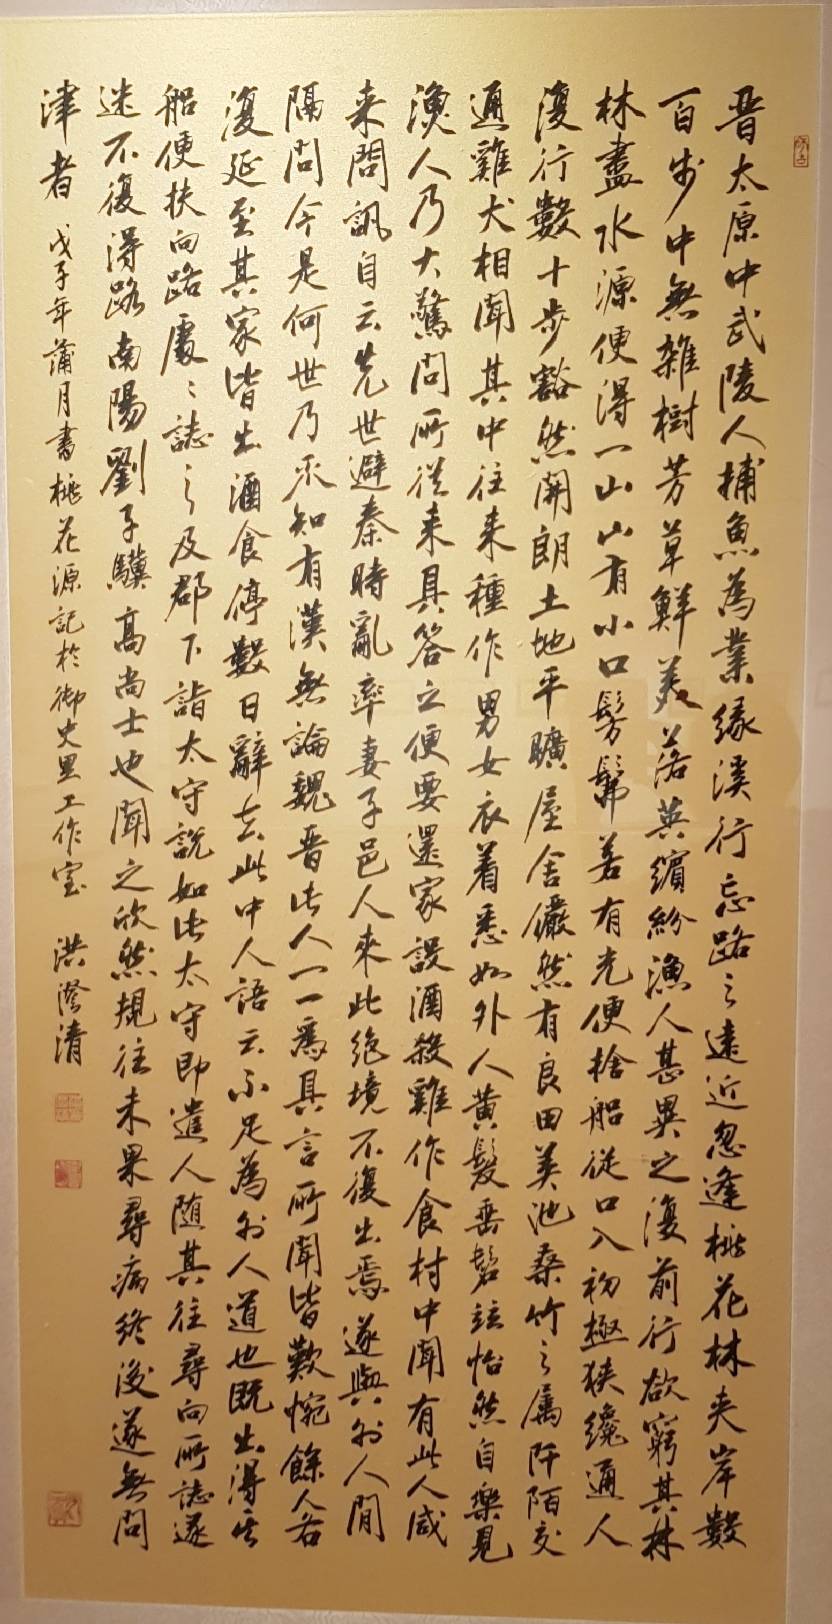 晋太原中武陵人捕魚為業緣溪行忘路之遠近忽逢桃花林夾岸數
百步中無雜樹芳草鮮美落英繽紛漁人甚異之復前行欲窮其林
林盡水源便得一山山有小口髣髴若有光便捨船從口入初極狹纔通人
復行數十步豁然開朗土地平曠屋舍儼然有良田美池桑竹之属阡陌交
通雞犬相聞其中往来種作男女衣着悉如外人黄髮垂髫竝怡然自樂見
漁人乃大驚問所從来具答之便要還家設酒殺雞作食村中聞有此人咸
来問訊自云先世避秦時亂率妻子邑人來此絶境不復出焉遂與外人間
隔問今是何世乃不知有漢無論魏晋此人一一為具言所聞皆歎惋餘人各
復延至其家皆出酒食停數日辭去此中人語云不足為外人道也既出得其
船便扶向路處〻誌之及郡下詣太守説如此太守即遣人随其往尋向所誌遂
迷不復得路南陽劉子驥高尚士也聞之欣然規往未果尋病終後遂無問
津者 戊子年蒲月書桃花源記於御史里工作室 洪澄清